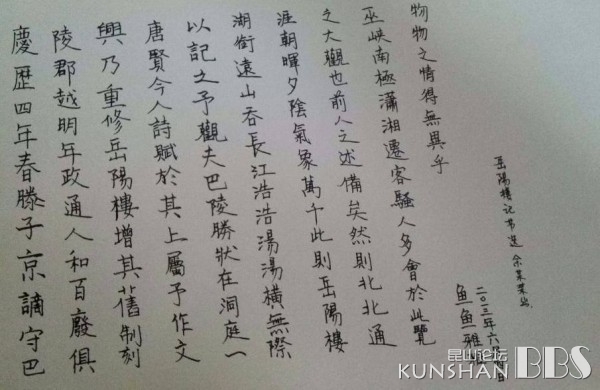 慶歷四年春滕子京謫守巴
陵郡越明年政通人和百廢俱
興乃重修岳陽樓增其舊制刻
唐賢今人詩賦於其上屬予作文
以記之予觀夫巴陵勝狀在洞庭一
湖銜遠山吞長江浩浩湯湯橫無際
涯朝暉夕陰氣象萬千此則岳陽樓
之大觀也前人之述備矣然則北北通
巫峽南極瀟湘遷客騷人多會於此覽
物物之情得無異乎
岳陽樓記节選
二〇一三年六月
鱼鱼雅
昆山论坛
KUNSHAN BBS